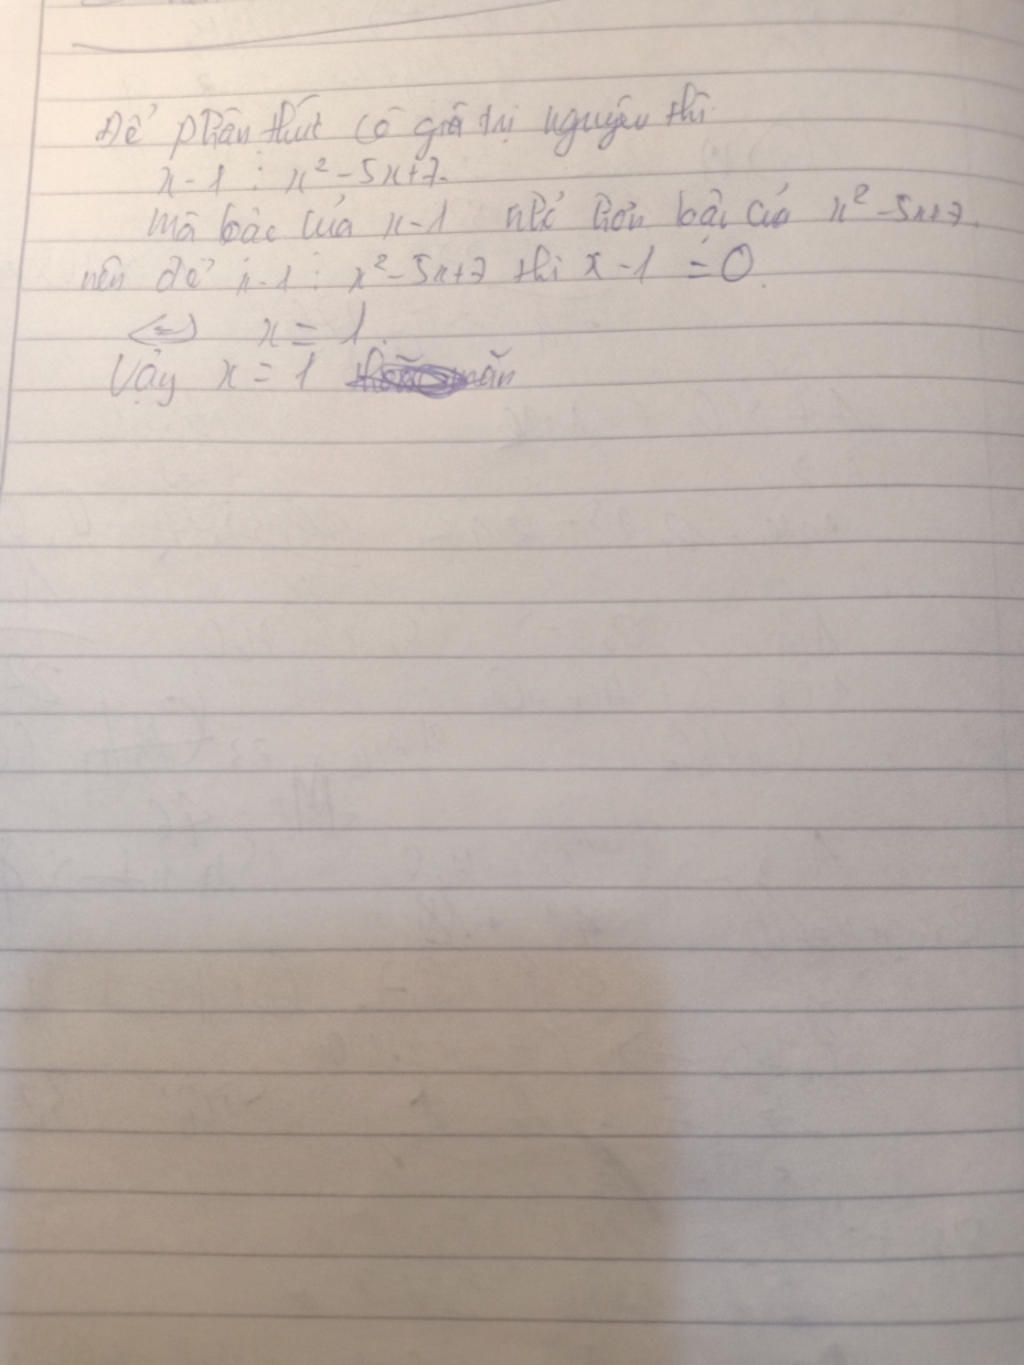 Để phân thức có giá trị nguyên thì
x-1 ⋮ x²-5x+7.
Mà bậc của x-1 nhỏ hơn bậc của x²-5x+7
nên để x-1 ⋮ x²-5x+7 thì x-1 = 0.
<=> x = 1.
Vậy x = 1